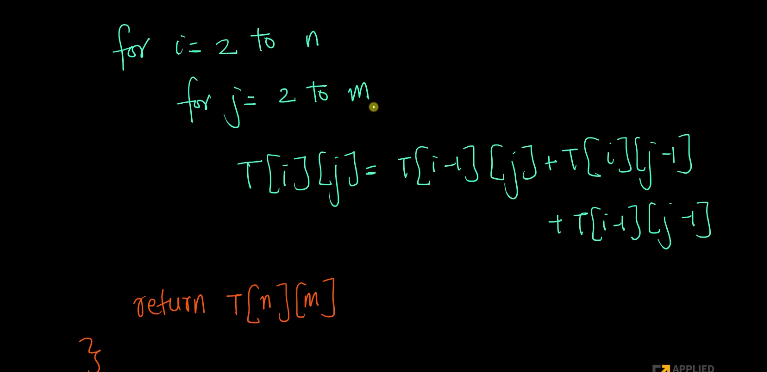 for i = 2 to n
for j = 2 to m
T[i][j] = T[i-1][j] + T[i][j-1]
+ T[i-1][j-1]
return T[n][m]
}
APPLIED